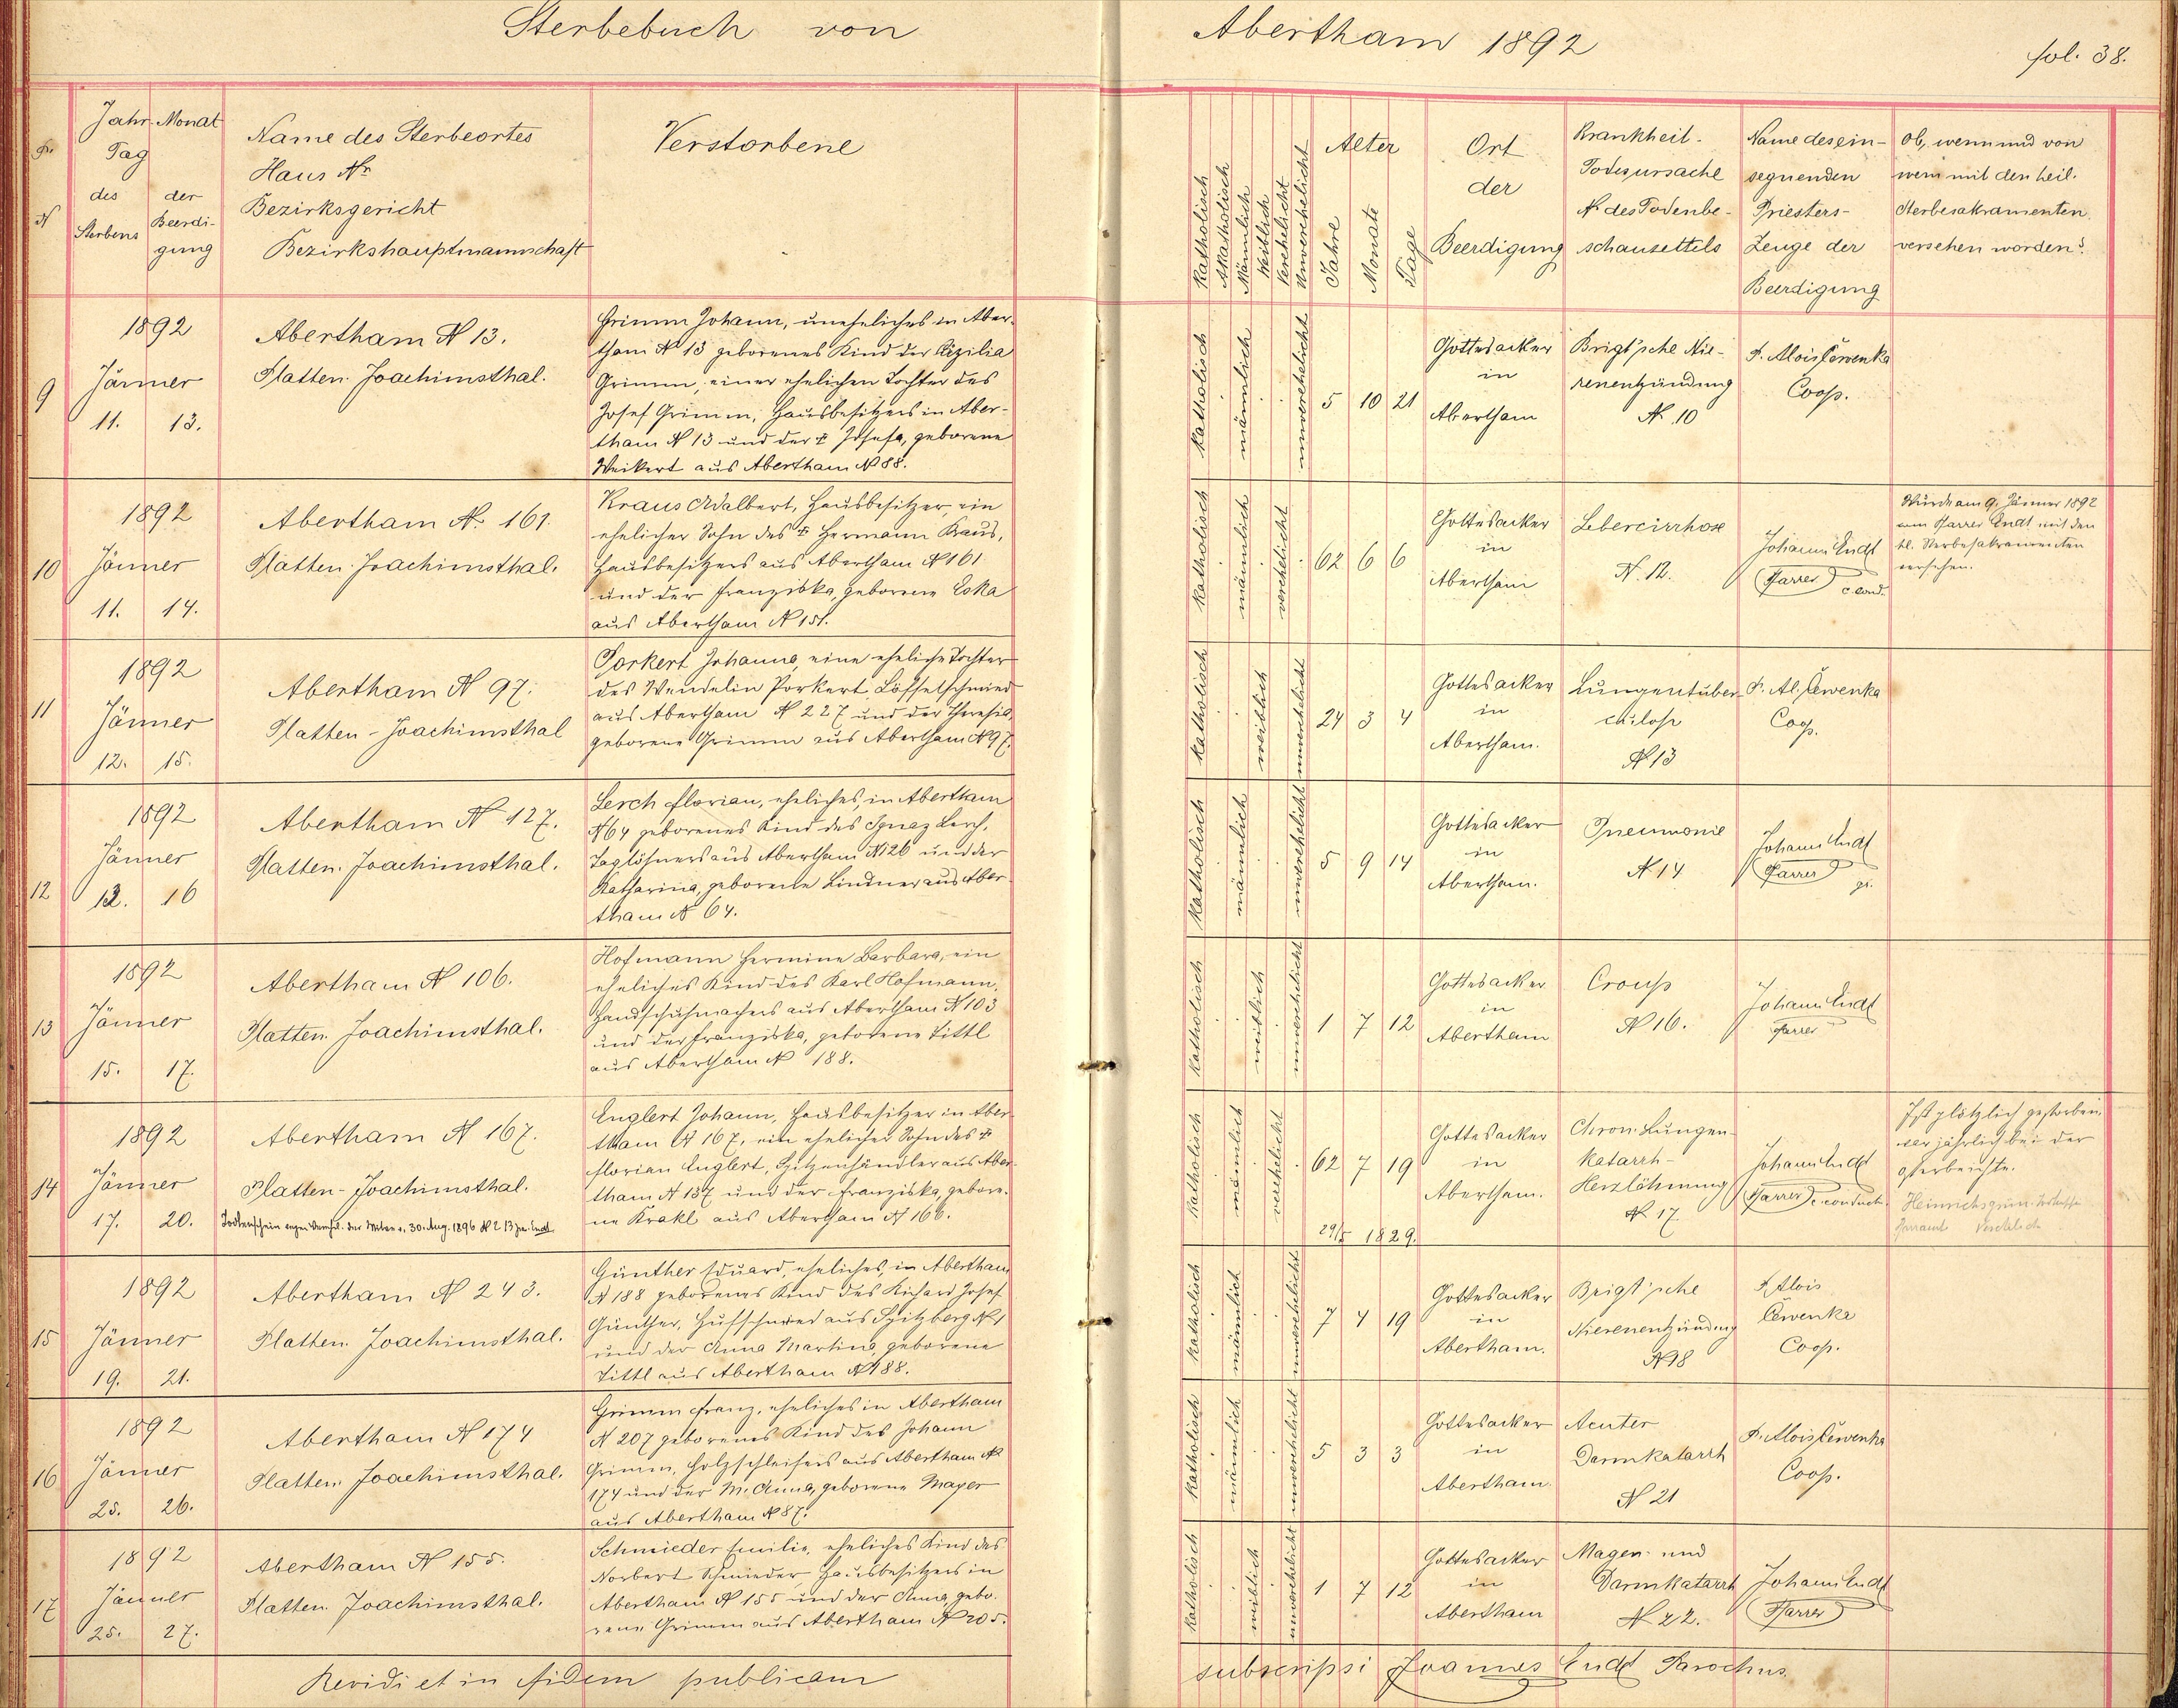 Sterbebuch von Abertham 1892
fol. 38.
Jahr Monat
Tag
des der
Sterbens Beerdi-
gung
Name des Sterbeortes
Haus Nr
Bezirksgericht
Bezirkshauptmannschaft
Verstorbene
Katholisch
Akatholisch
Männlich
Weiblich
Verehelicht
Unverehelicht
Alter
Jahre
Monate
Tage
Ort
der
Beerdigung
Krankheit-
Todesursache
Nr des Todenbe-
schauzettels
Name des ein-
segnenden
Priesters-
Zeuge der
Beerdigung
Ob, wenn und von
wem mit den heil.
Sterbesakramenten
versehen worden?
9
1892
Jänner
11. 13.
Abertham N 13.
Platten. Joachimsthal.
Grimm Johann, uneheliches in Aber-
tham N 13 geborenes Kind der Cäzilia
Grimm, einer ehelichen Tochter des
Josef Grimm, Hausbesitzers in Aber-
tham N 13 und der † Josefa, geborene
Weikert aus Abertham N 88.
katholisch
männlich
unverehelicht
5 10 21
Gottesacker
in
Abertham
Brigt'sche Nie-
renentzündung
N. 10
P. Alois Červenka
Coop.
10
1892
Jänner
11. 14.
Abertham N. 161.
Platten. Joachimsthal.
Kraus Adalbert, Hausbesitzer, ein
ehelicher Sohn des † Hermann Kraus,
Hausbesitzers aus Abertham N 161
und der Franziska, geborene Eska
aus Abertham N 151.
katholisch
männlich
verehelicht
62 6 6
Gottesacker
in
Abertham
Lebercirrhose
N. 12.
Johann Endt
Pfarrer
c. cond.
Wurde am 9. Jänner 1892
vom Pfarrer Endt mit den
hl. Sterbesakramenten
versehen.
11
1892
Jänner
12. 15.
Abertham N 97.
Platten - Joachimsthal
Porkert Johanna, eine eheliche Tochter
des Wendelin Porkert Löffelschmied
aus Abertham N 227 und der Theresia,
geborene Grimm aus Abertham N 97.
katholisch
weiblich
unverehelicht
24 3 4
Gottesacker
in
Abertham.
Lungentuber-
culose
N 13
P. Al. Červenka
Coop.
12
1892
Jänner
13. 16
Abertham N 127.
Platten. Joachimsthal.
Lerch Florian, eheliches, in Abertham
N 64 geborenes Kind des Ignaz Lerch,
Taglöhners aus Abertham N 126 und der
Katharina, geborene Lindner aus Aber-
tham N 64.
katholisch
männlich
unverehelicht
5 9 14
Gottesacker
in
Abertham.
Pneumonie
N 14
Johann Endt
Pfarrer
gr.
13
1892
Jänner
15. 17.
Abertham N 106.
Platten. Joachimsthal.
Hofmann Hermine Barbara, ein
eheliches Kind des Karl Hofmann,
Handschuhmachers aus Abertham N 103
und der Franziska, geborene Tittl
aus Abertham N 188.
katholisch
weiblich
unverehelicht
1 7 12
Gottesacker
in
Abertham
Croup
N 16.
Johann Endt
Pfarrer
14
1892
Jänner
17. 20.
Abertham N 167.
Platten - Joachimsthal.
Todtenschein 30. Aug. 1896 N 213 Endt
Englert Johann, Hausbesitzer in Aber-
tham N 167, ein ehelicher Sohn des †
Florian Englert, Spitzenhändler aus Aber-
tham N 137 und der Franziska, gebore-
ne Krakl aus Abertham N 166.
katholisch
männlich
verehelicht
62 7 19
29/5 1829.
Gottesacker
in
Abertham.
Chron. Lungen-
katarrh-
Herzlähmung
N. 17
Johann Endt
Pfarrer c. conduct.
Ist plötzlich gestorben
war jährlich bei der
Osterbeichte.
Heinrichsgrün
Pfarramt
15
1892
Jänner
19. 21.
Abertham N 243.
Platten. Joachimsthal.
Günther Eduard, eheliches, in Abertham
N 188 geborenes Kind des Richard Josef
Günther, Hufschmied aus Spitzberg N 1
und der Anna Martina, geborene
Tittl aus Abertham N 188.
katholisch
männlich
unverehelicht
7 4 19
Gottesacker
in
Abertham.
Brigt'sche
Nierenentzündung
N 18
P. Alois
Červenka
Coop.
16
1892
Jänner
25. 26.
Abertham N 174
Platten. Joachimsthal.
Grimm Franz, eheliches in Abertham
N 207 geborenes Kind des Johann
Grimm, Holzschleifers aus Abertham N
174 und der M. Anna, geborene Mayer
aus Abertham N 87.
katholisch
männlich
unverehelicht
5 3 3
Gottesacker
in
Abertham.
Acuter
Darmkatarrh
N 21
P. Alois Červenka
Coop.
17
1892
Jänner
25. 27.
Abertham N 155.
Platten. Joachimsthal.
Schmieder Emilie, eheliches Kind des
Norbert Schmieder, Hausbesitzers in
Abertham N 155 und der Anna, gebo-
rene Grimm aus Abertham N 205.
katholisch
weiblich
unverehelicht
1 7 12
Gottesacker
in
Abertham
Magen- und
Darmkatarrh
N 22.
Johann Endt
Pfarrer
Revidi et in fidem publicam subscripsi Joannes Endt Parochus